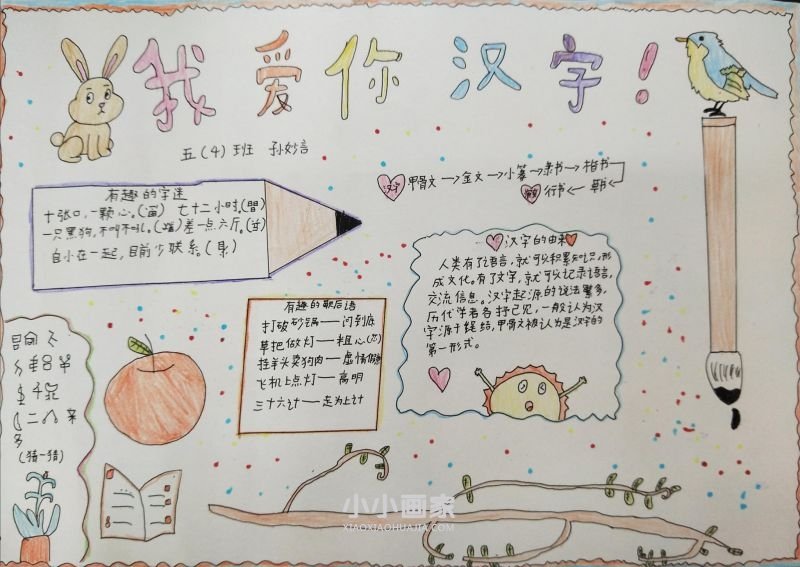 我爱你汉字！
五(4)班 孙妙言
汉字 甲骨文→金文→小篆→隶书→楷书
行书←草书←
有趣的字迷
十张口,一颗心。(思) 七十二小时。(間)
一只黑狗,不叫不吼。(默)差一点六斤。(兯)
自小在一起,目前少联系。(省)
汉字的由来
人类有了语言,就可以积累知识,形
成文化。有了文字,就可以记录语言,
交流信息。汉字起源的说法繁多,
历代学者各抒己见,一般认为汉
字源于绳结,甲骨文被认为是汉字的
第一形式。
有趣的歇后语
打破砂锅——问到底
草把做灯——粗心(芯)
挂羊头卖狗肉——虚情假意
飞机上点灯——高明
三十六计——走为上计
多
(猜一猜)
小小画家
XIAOXIAOHUAJIA.COM